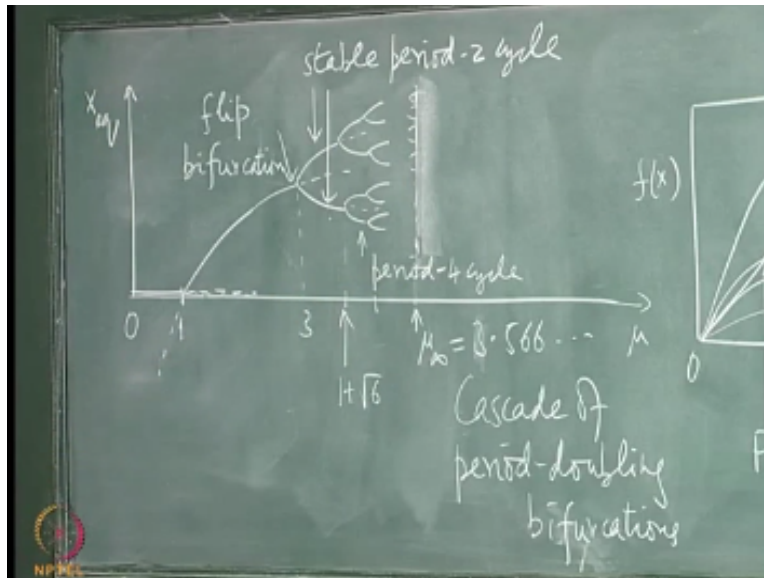 stable period-2 cycle
x_eq
flip
bifurcation
f(x)
period-4 cycle
0 1 3 μ∞ = 3.566 ... μ
0
1+√6
Cascade of
period-doubling
bifurcations
NPTEL